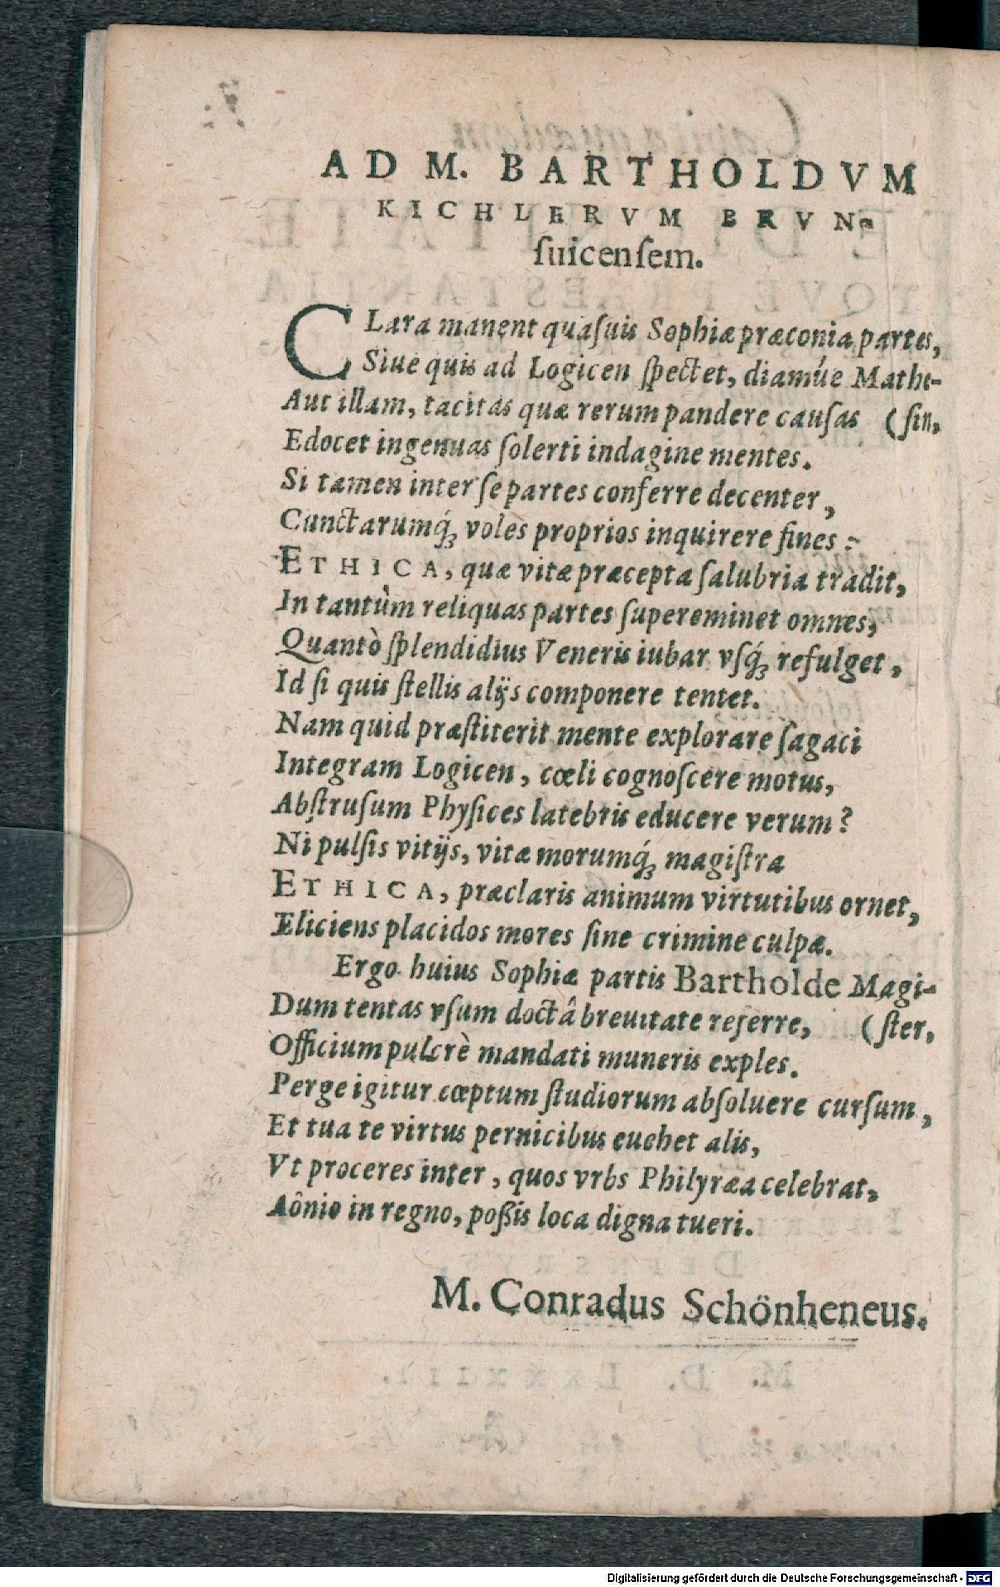 AD M. BARTHOLDVM
KICHLERVM BRVN-
ſuicenſem.
CLara manent quaſuis Sophiæ præconia partes,
Siue quis ad Logicen ſpectet, diamúe Mathe-
Aut illam, tacitas quæ rerum pandere cauſas (ſin,
Edocet ingenuas ſolerti indagine mentes.
Si tamen inter ſe partes conferre decenter,
Cunctarumq́; voles proprios inquirere fines:
ETHICA, quæ vitæ præcepta ſalubria tradit,
In tantùm reliquas partes ſupereminet omnes,
Quantò ſplendidius Veneris iubar vſq́; refulget,
Id ſi quis ſtellis alijs componere tentet.
Nam quid præſtiterit mente explorare ſagaci
Integram Logicen, cœli cognoſcere motus,
Abſtruſum Phyſices latebris educere verum?
Ni pulſis vitijs, vitæ morumq́; magiſtra
ETHICA, præclaris animum virtutibus ornet,
Eliciens placidos mores ſine crimine culpæ.
Ergo huius Sophiæ partis Bartholde Magi-
Dum tentas vſum doctâ breuitate referre, (ſter,
Officium pulcrè mandati muneris exples.
Perge igitur cœptum ſtudiorum abſoluere curſum,
Et tua te virtus pernicibus euehet alis,
Vt proceres inter, quos vrbs Philyræa celebrat,
Aônio in regno, poßis loca digna tueri.
M. Conradus Schönheneus.
Digitalisierung gefördert durch die Deutsche Forschungsgemeinschaft - DFG